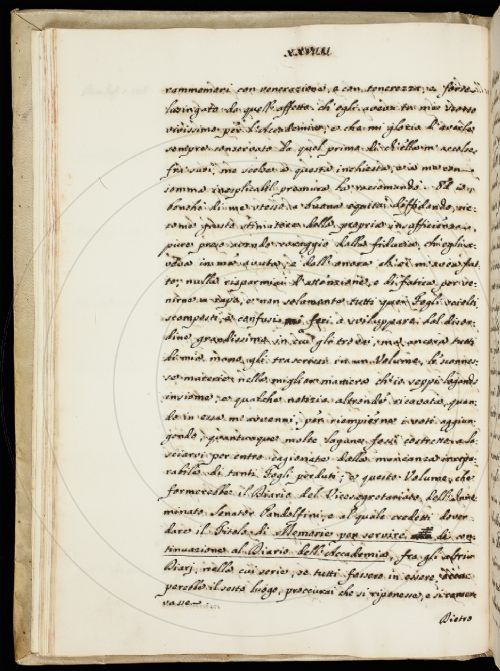 XXVIII
rammemori con venerazione, e con tenerezza, e forse
lusingato da quell' affetto ch' egli avea in me visto
vivissimo per l'Accademia; e che mi glorio d'averle
sempre conservato da quel primo dì ch'ella m'accolse
fra suoi, me scelse a questa inchiesta, e a me con
somma inesplicabil premura la raccomandò. Ed io
benchè di me stesso a buona equità diffidando, sic-
come giusto stimatore della propria insufficienza,
pure preso avendo coraggio dalla fiducia, ch'egli a-
vea in me avuta, e dall' onore ch'ei m'avea fat-
to; nulla risparmiai d'attenzione, e di fatica per ve-
nirne a capo, e non solamente tutti quei Fogli sciolti
scomposti, e confusi mi feci a sviluppare dal disor-
dine grandissimo in cui gli trovai, ma ancora tutti
di mia mano gli trascrissi in un Volume, le sconnes-
se materie nella miglior maniera ch'io seppi legando
insieme, e qualche notizia altronde ricavata, quan-
do in essa m'avvenni, per riempierne i voti aggiun-
gendo, quantunque molte lagune fossi costretto a la-
sciarvi per entro cagionate dalla mancanza irrepa-
rabile di tanti Fogli perduti; e questo Volume, che
formerebbe il Diario del Vicesegretariato dell'
nominato Senator Pandolfini, e al quale credetti dover
dare il Titolo di Memorie per servire di con
tinuazione al Diario dell' Accademia, fra gli altri
Diarj, nella cui serie, se tutti fossero in essere,
perebbe il sesto luogo, proccurai che si riponesse, e si conser
vasse.
Pietro